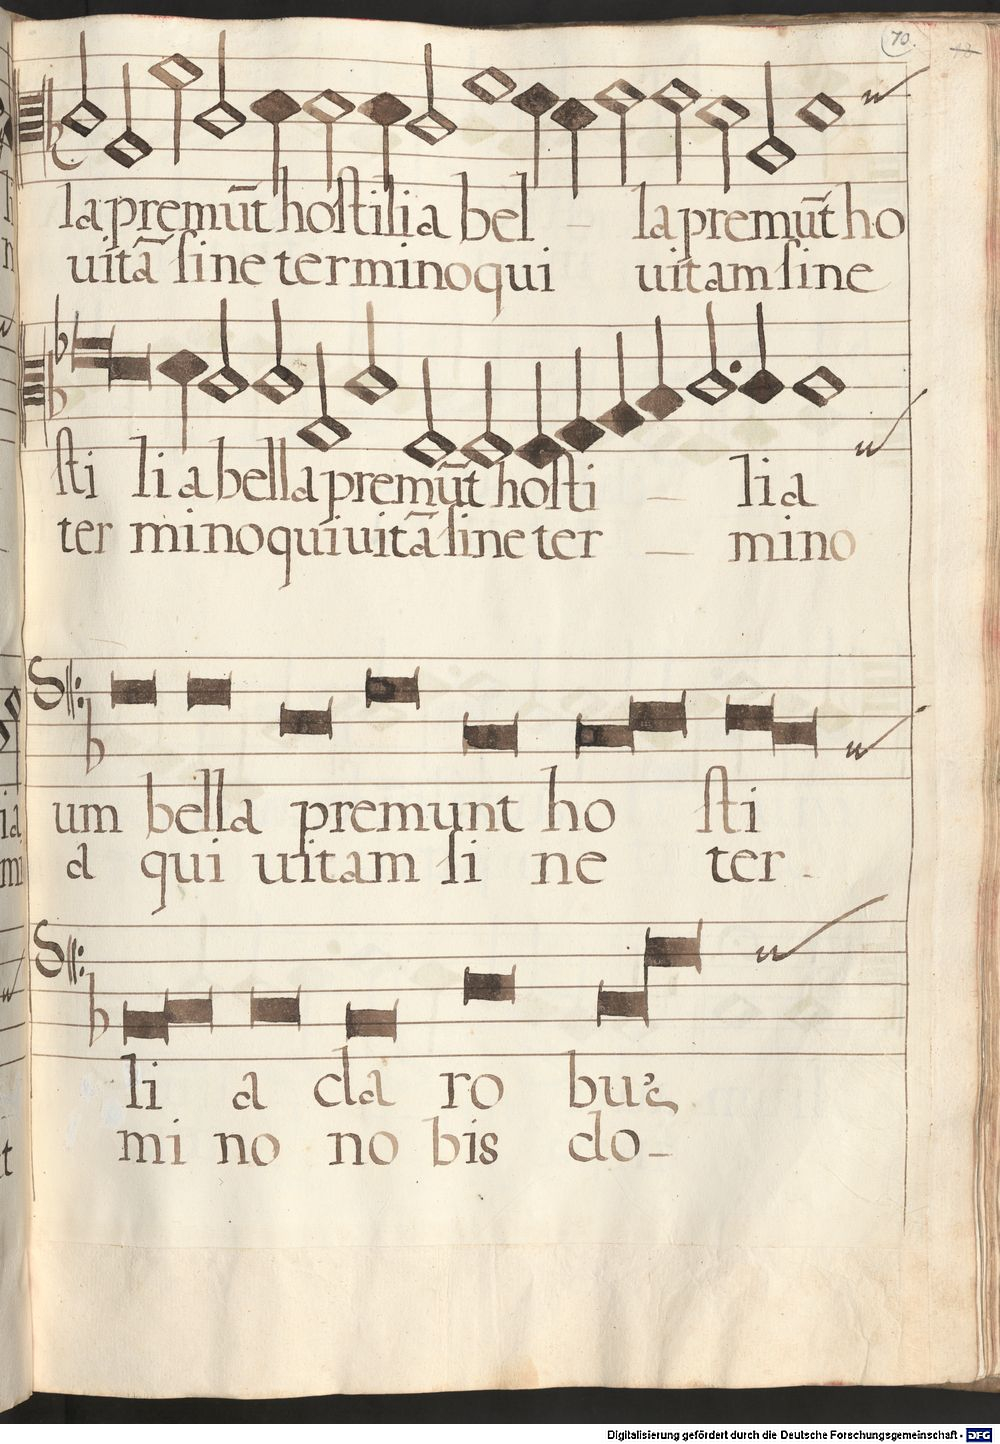 70.
la premūt hostilia bel – la premūt ho
uitā sine termino qui uitam sine
sti li a bella premūt hosti – lia
ter mino qui uitā sine ter – mino
um bella premunt ho sti
a qui uitam si ne ter -
li a da ro bur
mi no no bis do -
Digitalisierung gefördert durch die Deutsche Forschungsgemeinschaft - DFG